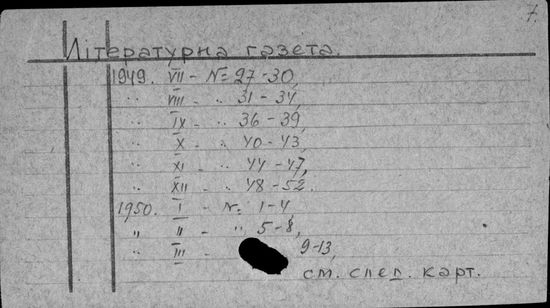 7.
Літературна газета.
1949. VII - № 27-30,
" VIII - " 31-34,
" IX - " 36-39,
" X - " 40-43,
" XI - " 44-47,
" XII - " 48-52.
1950. I - № 1-4,
" II - " 5-8,
" III - 9-13,
см. спец. карт.